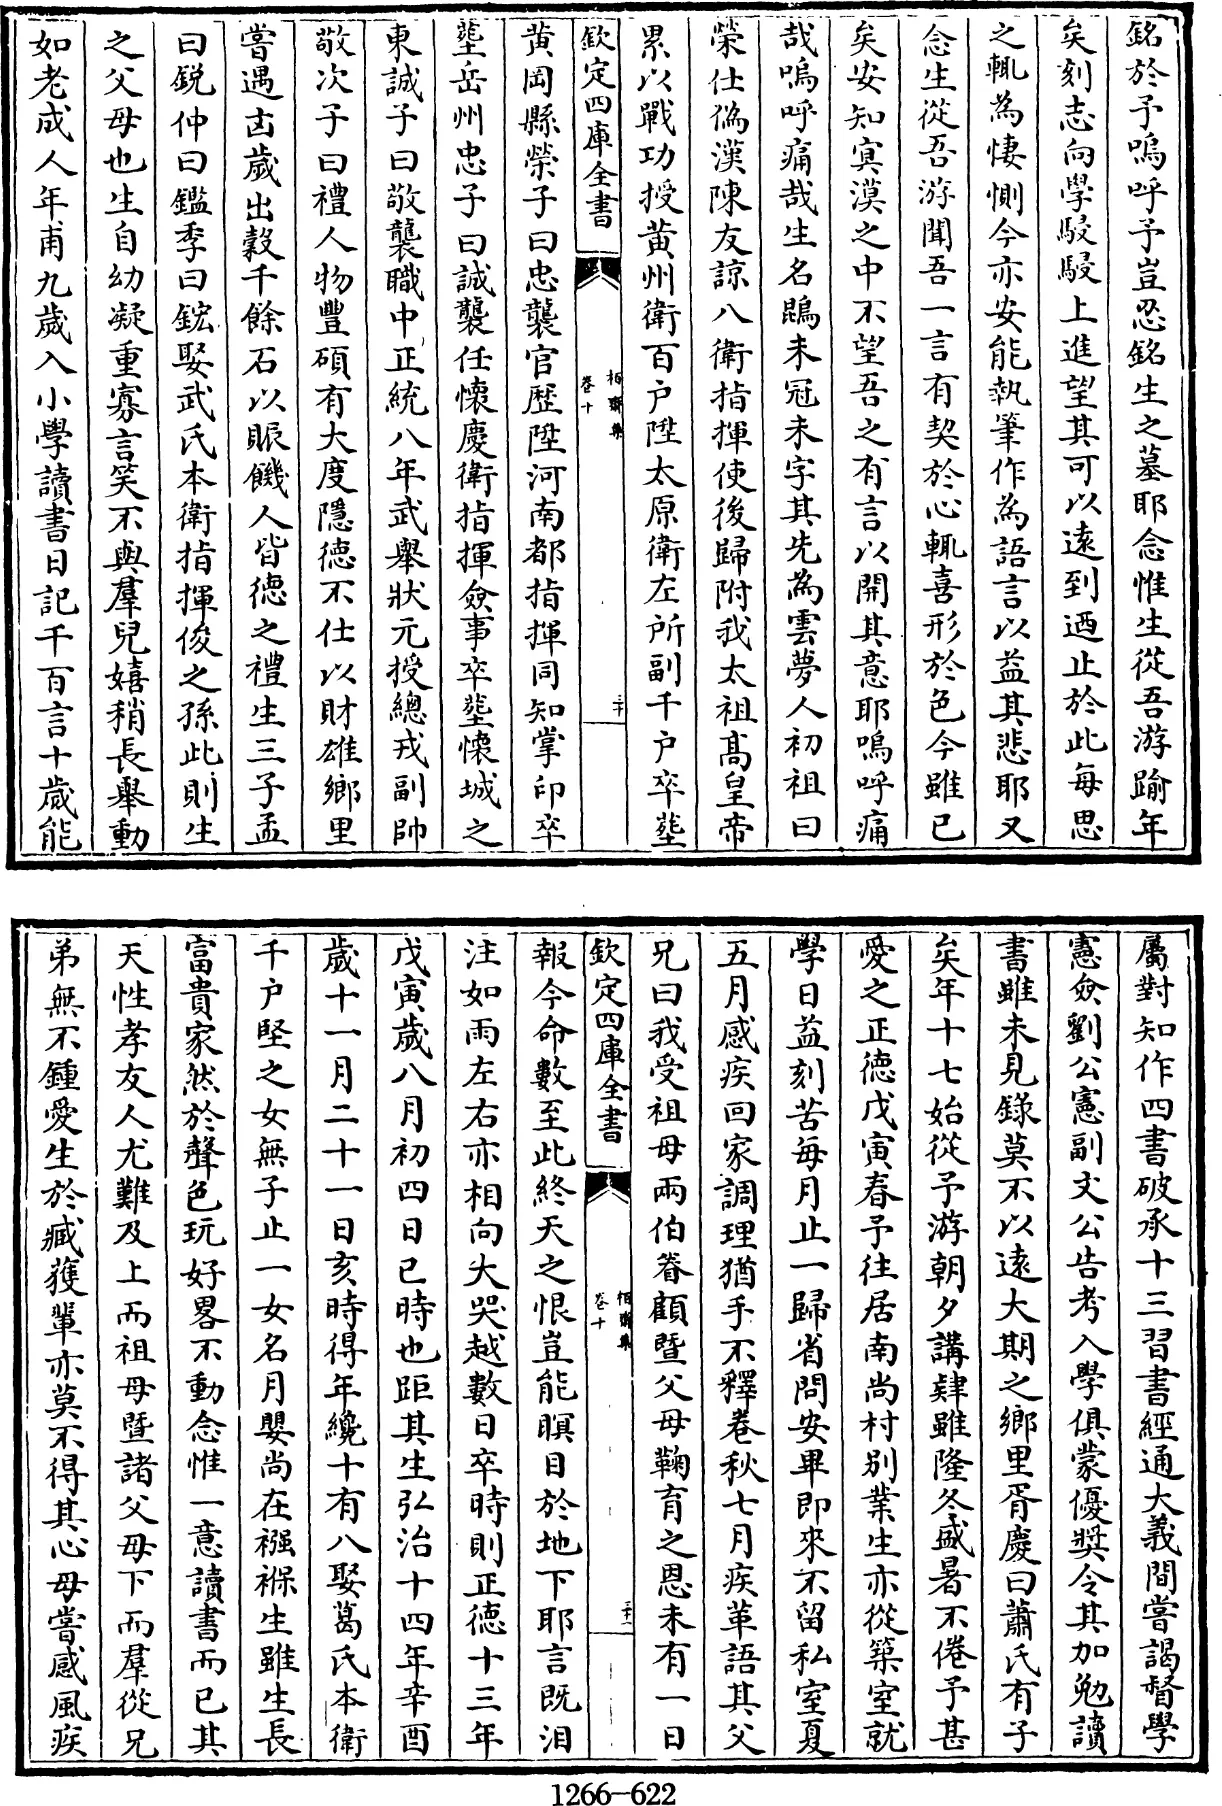 銘於予嗚呼予豈忍銘生之墓耶念惟生從吾游踰年
矣刻志向學駸駸上進望其可以遠到迺止於此每思
之輒為悽惻今亦安能執筆作為語言以益其悲耶又
念生從吾游聞吾一言有契於心輒喜形於色今雖已
矣安知寞漠之中不望吾之有言以開其意耶嗚呼痛
哉嗚呼痛哉生名鵾未冠未字其先為雲夢人初祖曰
榮仕偽漢陳友諒八衛指揮使後歸附我太祖髙皇帝
累以戰功授黄州衛百户陞太原衛左所副千户卒塟
欽定四庫全書
栢齋集
卷十
三十
黄岡縣榮子曰忠襲官歴陞河南都指揮同知掌印卒
塟岳州忠子曰誠襲任懷慶衛指揮僉事卒塟懷城之
東誠子曰敬襲職中正統八年武舉狀元授總戎副帥
敬次子曰禮人物豐碩有大度隱德不仕以財雄鄉里
嘗遇凶歲出穀千餘石以賑饑人皆德之禮生三子孟
曰銳仲曰鑑季曰鋐娶武氏本衛指揮俊之孫此則生
之父母也生自幼凝重寡言笑不與羣兒嬉稍長舉動
如老成人年甫九歲入小學讀書日記千百言十歲能
屬對知作四書破承十三習書經通大義間嘗謁督學
憲僉劉公憲副文公告考入學俱蒙優奬令其加勉讀
書雖未見錄莫不以遠大期之鄉里胥慶曰蕭氏有子
矣年十七始從予游朝夕講肄雖隆冬盛暑不倦予甚
愛之正德戊寅春予往居南尚村别業生亦從築室就
學日益刻苦每月止一歸省問安畢即來不留私室夏
五月感疾回家調理猶手不釋巻秋七月疾革語其父
兄曰我受祖母兩伯眷顧暨父母鞠育之恩未有一日
欽定四庫全書
栢齋集
卷十
三十一
報今命數至此終天之恨豈能瞑目於地下耶言既泪
注如雨左右亦相向大哭越數日卒時則正德十三年
戊寅歲八月初四日巳時也距其生弘治十四年辛酉
歲十一月二十一日亥時得年纔十有八娶葛氏本衛
千户堅之女無子止一女名月嬰尚在襁褓生雖生長
富貴家然於聲色玩好畧不動念惟一意讀書而已其
天性孝友人尤難及上而祖母暨諸父母下而羣從兄
弟無不鍾愛生於臧獲輩亦莫不得其心母嘗感風疾
1266-622